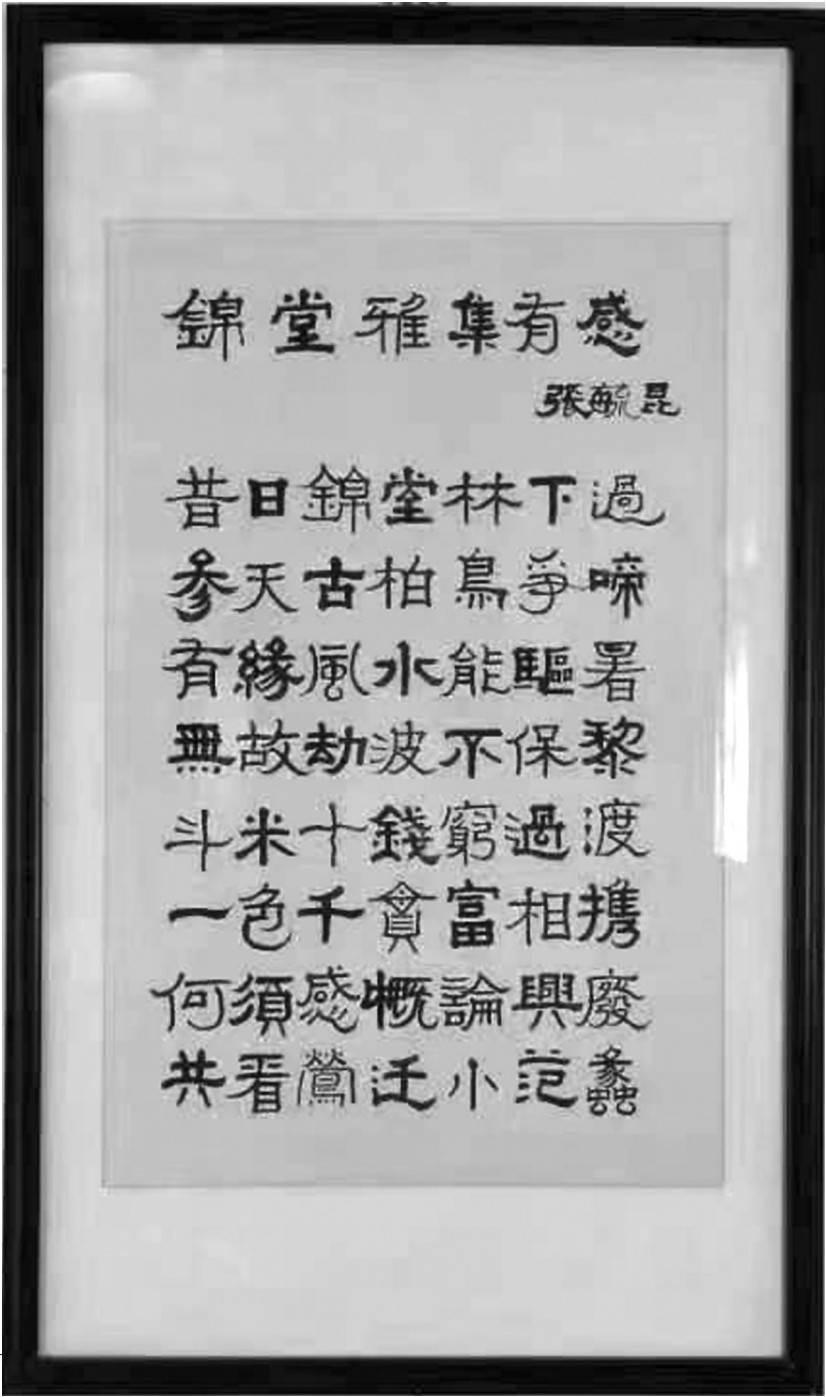 錦堂雅集有感
張毓昆
昔日錦堂林下過
參天古柏鳥爭啼
有緣風水能驅暑
無故劫波不保黎
斗米十錢窮過渡
一色千貪富相携
何須感慨論興廢
共看鶯迁小范蠡